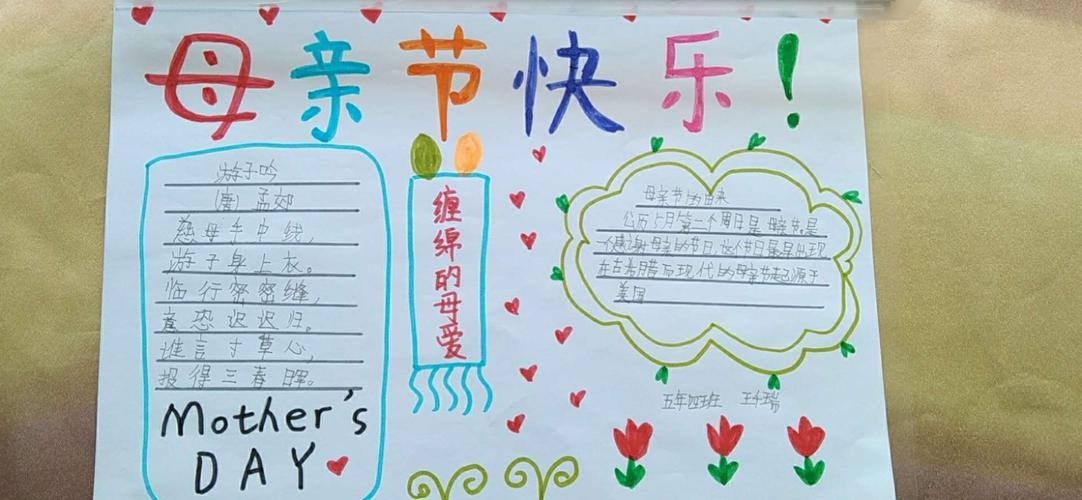 母亲节快乐!
游子吟
(唐) 孟郊
慈母手中线,
游子身上衣。
临行密密缝,
意恐迟迟归。
谁言寸草心,
报得三春晖。
Mother's
DAY
缠绵的母爱
母亲节的由来
公历5月第二个周日是母亲节,是
一个感谢母亲的节日,这个节日最早出现
在古希腊而现代的母亲节起源于
美国
五年四班